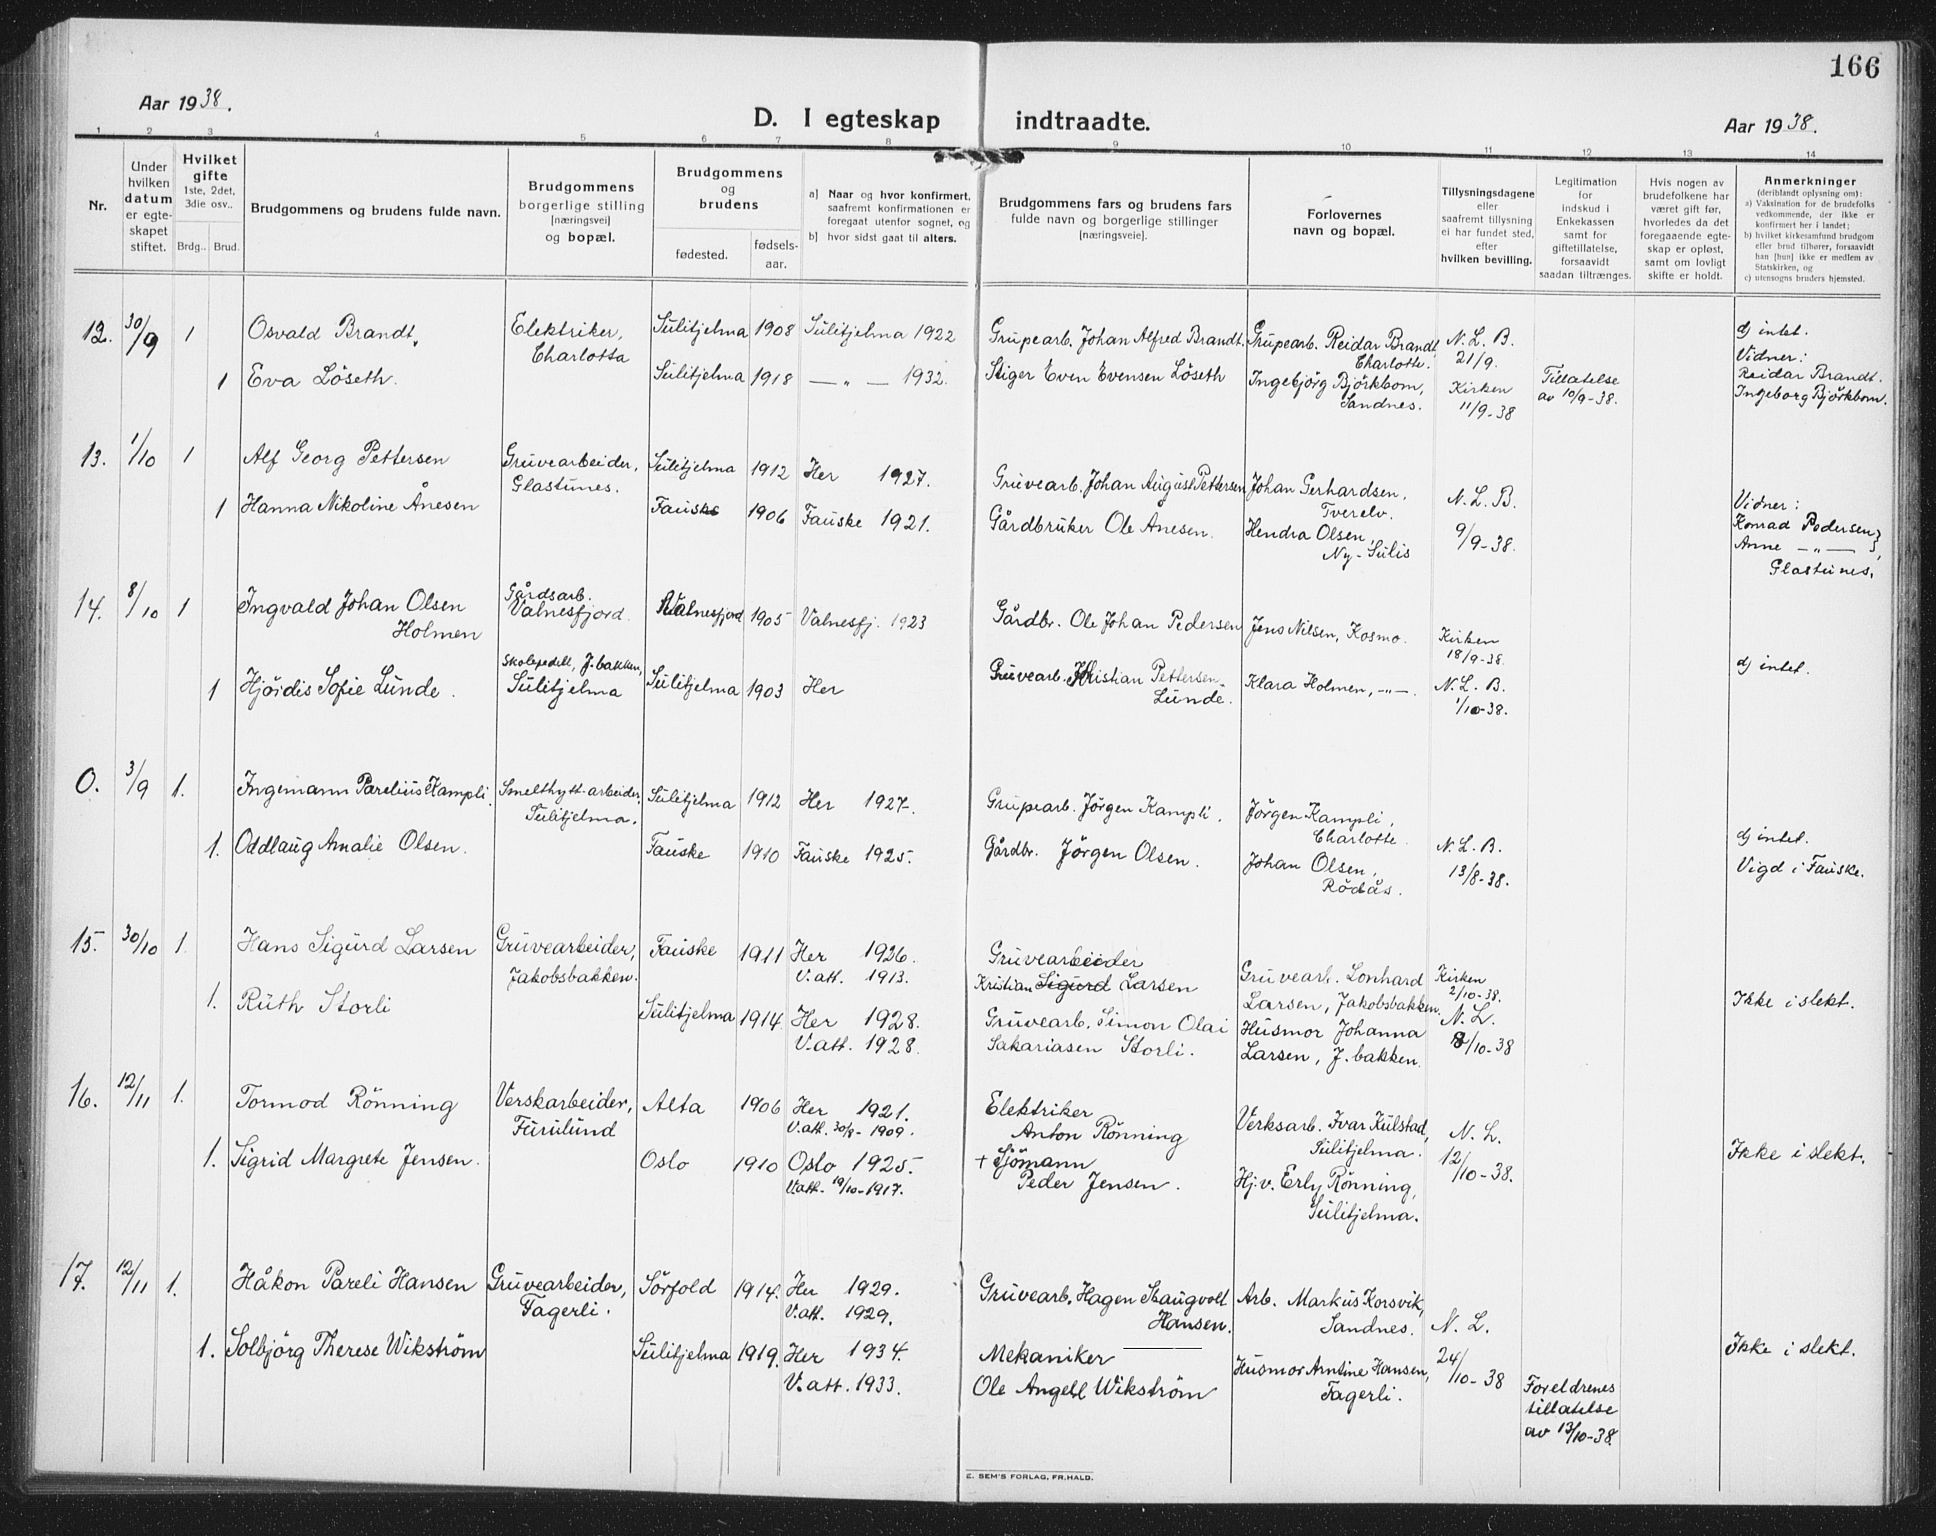 166
Aar 1938.
D. I egteskap indtraadte.
Aar 1938.
1 2 3 4 5 6 7 8 9 10 11 12 13 14
Nr.
Under hvilken datum er egte-skapet stiftet.
Hvilket gifte 1ste, 2det, 3die osv..
Brdg.. Brud.
Brudgommens og brudens fulde navn.
Brudgommens borgerlige stilling [næringsvei] og bopæl.
Brudgommens og brudens
fødested.
fødsels-aar.
a) Naar og hvor konfirmert, saafremt konfirmationen er foregaat utenfor sognet, og
b) hvor sidst gaat til alters.
Brudgommens fars og brudens fars fulde navn og borgerlige stillinger [næringsveie].
Forlovernes navn og bopæl.
Tillysningsdagene eller saafremt tillysning ei har fundet sted, efter hvilken bevilling.
Legitimation for indskud i Enkekassen samt for giftetillatelse, forsaavidt saadan tiltrænges.
Hvis nogen av brudefolkene har været gift før, hvorledes da det foregaaende egte-skap er opløst, samt om lovligt skifte er holdt.
Anmerkninger
(deriblandt oplysning om):
a) Vaksination for de brudefolks vedkommende, der ikke er konfirmert her i landet;
b) hvilket kirkesamfund brudgom eller brud tilhører, forsaavidt han [hun] ikke er medlem av Statskirken, og
c) utensogns bruders hjemsted.
12. 30/9 1 Osvald Brandt, Elektriker, Charlotta Sulitjelma 1908 Sulitjelma 1922 Grupearb. Johan Alfred Brandt. Grupearb. Reidar Brandt, Charlotte. N. L. B. 21/9. Ej intet.
Vidner:
1 Eva Löseth. Sulitjelma 1918 — „ — 1932. Stiger Even Evensen Löseth Ingebjörg Björkbom, Sandnes. Kirken 11/9-38 Tillatelse av 10/9-38. Reidar Brandt.
Ingeborg Björkbom.
13. 1/10 1 Alf Georg Pettersen Gruvearbeider, Glastunes. Sulitjelma 1912 Her 1927. Gruvearb. Johan August Pettersen Johan Gerhardsen, Tverelv. N. L. B.
1 Hanna Nikoline Ånesen Fauske 1906 Fauske 1921. Gårdbruker Ole Anesen. Hendra Olsen, Ny-Sulis 9/9-38. Vidner:
Konrad Pedersen
Anne — „ — },
Glastunes.
14. 8/10 1 Ingvald Johan Olsen Holmen Gårdsarb. Valnesfjord. Valnesfjord 1905 Valnesfj. 1923 Gårdbr. Ole Johan Pedersen Jens Nilsen, Kosmo. Kirken 18/9-38.
1 Hjördis Sofie Lunde. Skolepedell, J.bakken, Sulitjelma Sulitjelma 1903 Her Gruvearb. Kristian Pettersen Lunde. Klara Holmen, -„-. N. L. B. 1/10-38. Ej intet.
0. 3/9 1. Ingemann Parelius Kampli. Smelthytt-arbeider, Sulitjelma. Sulitjelma 1912 Her 1927. Grupearb. Jörgen Kampli. Jörgen Kampli, Charlotte. N. L. B. Ej intet.
1. Oddlaug Amalie Olsen. Fauske 1910 Fauske 1925. Gårdbr. Jörgen Olsen. Johan Olsen, Rödås. 13/8-38. Vigd i Fauske.
15. 30/10 1. Hans Sigurd Larsen Gruvearbeider, Jakobsbakken. Fauske 1911 Her 1926. V.att. 1913. Gruvearbeider Kristian Sigurd Larsen Gruvearb. Lonhard Larsen, Jakobsbakken. Kirken 2/10-38.
1. Ruth Storli Sulitjelma 1914. Her 1928. V.att. 1928. Gruvearb. Simon Olai Sakariasen Storli. Husmor Johanna Larsen, J. bakken. N. L. 8/10-38 Ikke i slekt.
16. 12/11 1. Tormod Rönning Verskarbeider, Furulund Alta 1906 Her 1921. V.att. 30/8-1909. Elektriker Anton Rönning Verksarb. Ivar Kulstad, Sulitjelma. N. L.
1. Sigrid Margrete Jensen. Oslo 1910 Oslo 1925. V.att. 19/10-1917. + Sjömann Peder Jensen. Hj.v. Erly Rönning, Sulitjelma. 12/10-38. Ikke i slekt.
17. 12/11 1. Håkon Pareli Hansen Gruvearbeider, Fagerli. Sörfold 1914. Her 1929. V.att. 1929. Gruvearb. Hagen Skaugvoll Hansen. Arb. Markus Korsvik, Sandnes. N. L.
1. Solbjörg Therese Wikström Sulitjelma 1919. Her 1934. V.att. 1933. Mekaniker Ole Angell Wikström Husmor Arntine Hansen, Fagerli. 24/10-38 Foreldrenes tillatelse av 13/10-38. Ikke i slekt.
E. SEM'S FORLAG, FR.HALD.